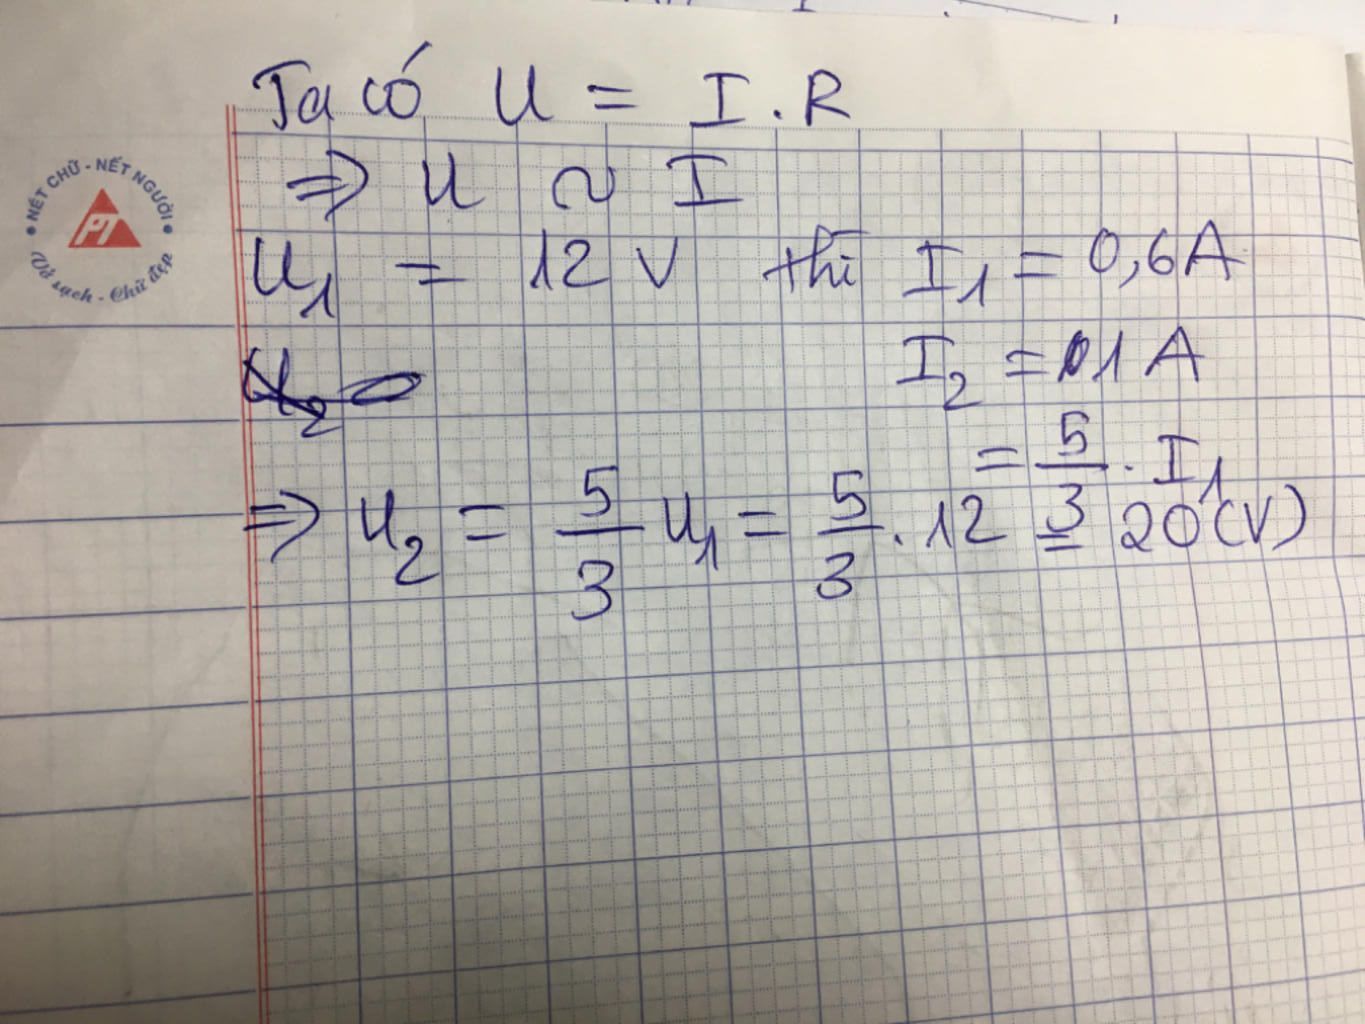 NÉT CHỮ - NẾT NGƯỜI
PT
Vở sạch - Chữ đẹp
Ta có U = I . R
=> U ~ I
U1 = 12 V thì I1 = 0,6A
I2 = 1 A
= 5/3 . I1
=> U2 = 5/3 U1 = 5/3 . 12 = 20 (V)